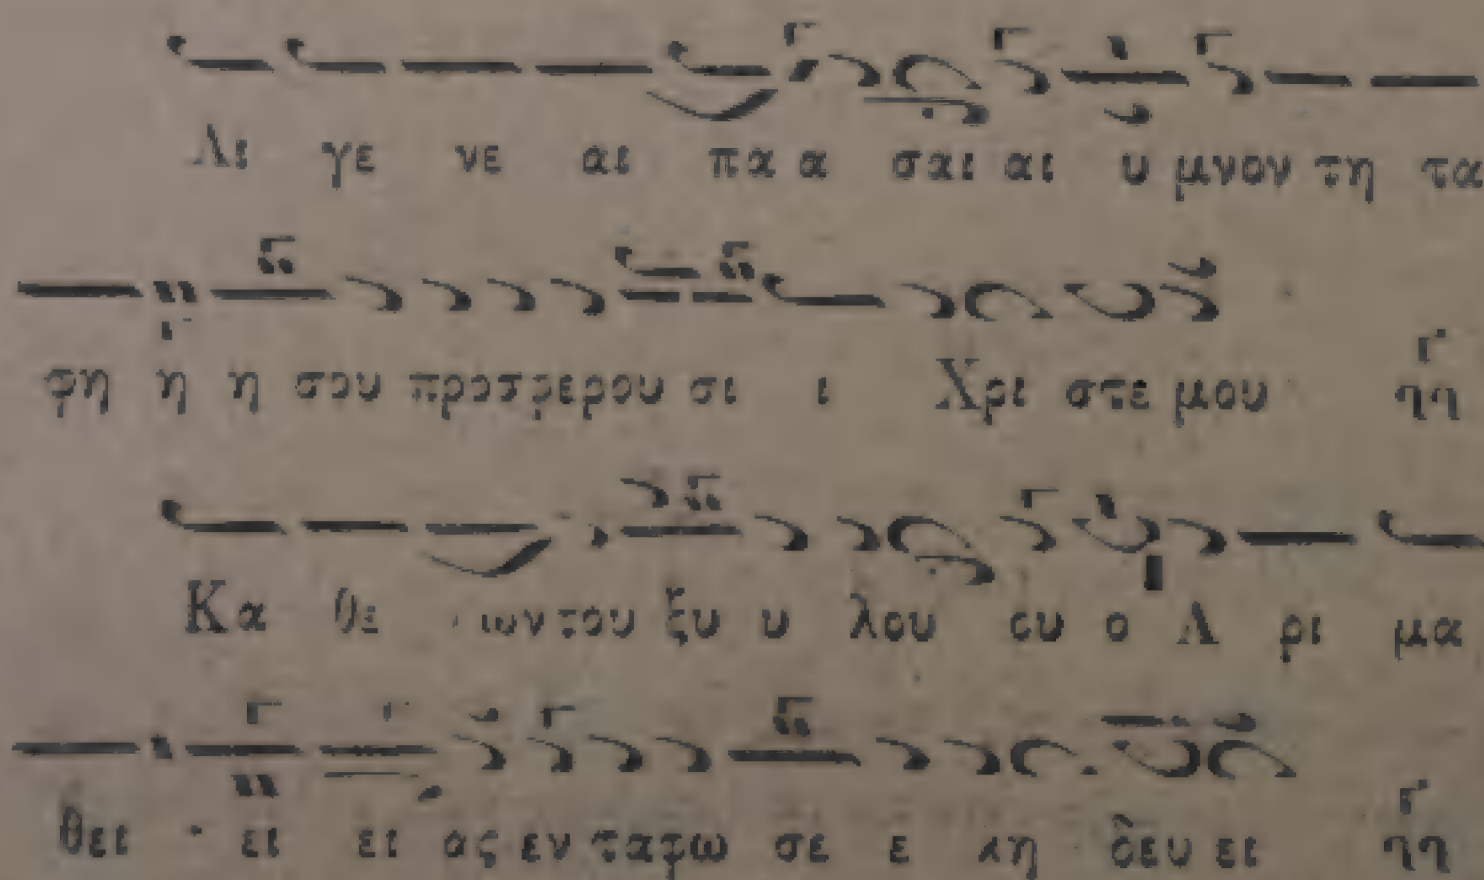 Αι γε νε αι πα α σαι αι υ μνον τη τα
φη η η σου προσφερου σι ι Χρι στε μου
Κα θε λων του ξυ υ λου ου ο Α ρι μα
θει ει ει ας εν ταφω σε ε κη δευ ει